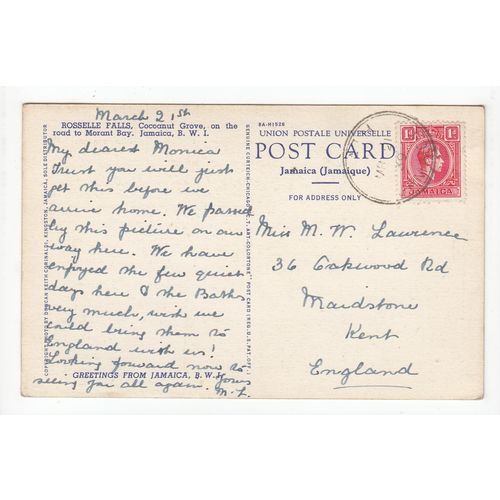 March 21st
ROSSELLE FALLS, Cocoanut Grove, on the
road to Morant Bay. Jamaica, B. W. I.
My dearest Monica
Trust you will just
get this before we
arrive home. We passed
by this picture on our
way here. We have
enjoyed the few quiet
days here & the Baths
very much, wish we
could bring them to
England with us!
Looking forward now to
seeing you all again. Yours
M. L.
GREETINGS FROM JAMAICA, B. W. I.
COPYRIGHT PHOTO BY DUNCAN KEITH CORINALDI, KINGSTON, JAMAICA, SOLE DISTRIBUTOR
GENUINE CURTEICH-CHICAGO "C.T. ART-COLORTONE" POST CARD (REG. U.S. PAT. OFF.)
8A-H1526
UNION POSTALE UNIVERSELLE
POST CARD
Jamaica (Jamaique)
FOR ADDRESS ONLY
1d 1d
JAMAICA
Miss M. W. Lawrence
36 Oakwood Rd
Maidstone
Kent
England